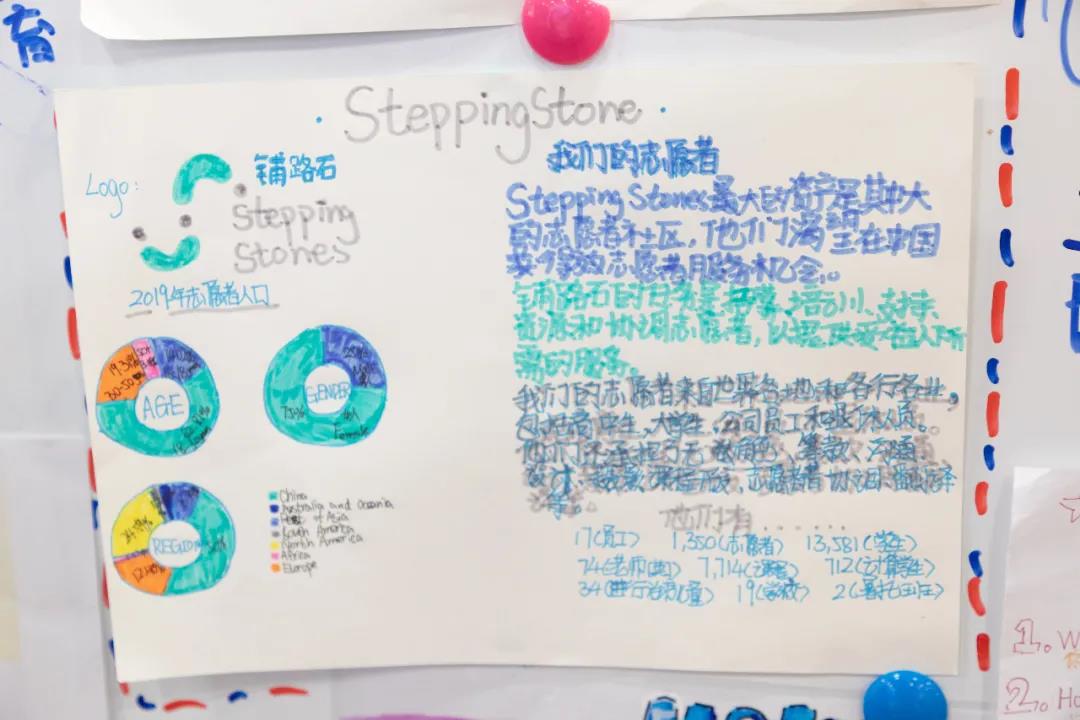 育
SteppingStone
Logo:
铺路石
Stepping
Stones
2019年志愿者人口
AGE
19.3%
30-50
GENDER
25%
75%
Female
REGION
12%
China
Australia and Oceania
Rest of Asia
South America
North America
Africa
Europe
我们的志愿者
Stepping Stones最大的资产是其庞大
的志愿者社区,他们渴望在中国
志愿者服务机会。
铺路石的目标是招募、培训、支持、
资源和协调志愿者,以提供受益人所
需的服务。
我们的志愿者来自世界各地和各行各业,
包括高中生,大学生,公司员工和退休人员。
他们还承担了无数角色、筹款、沟通、
设计、课程开发,志愿者协调、翻译
等。
他们有......
17(员工) 1,350(志愿者) 13,581(学生)
74(老师) 7,714 712(学生)
34 19(学校) 2
1. W
2. Ho